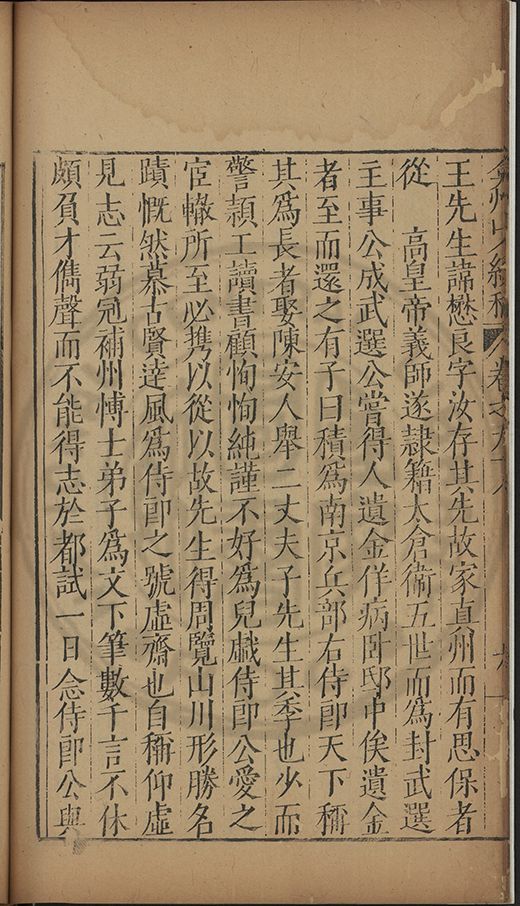 弇州山人續稿 卷之九十八
王先生諱懋良字汝存其先故家真州而有思保者
從 高皇帝義師遂隷籍太倉衞五世而爲封武選
主事公成武選公嘗得人遺金佯病卧邸中俟遺金
者至而還之有子曰積爲南京兵部右侍郎天下稱
其爲長者娶陳安人舉二丈夫子先生其季也少而
警頴工讀書顧恂恂純謹不好爲兒戯侍郎公愛之
宦轍所至必携以從以故先生得周覽山川形勝名
蹟慨然慕古賢達風爲侍郎之號虛齋也自稱仰虛
見志云弱冠補州博士弟子爲文下筆數千言不休
頗負才儁聲而不能得志於都試一日念侍郎公與